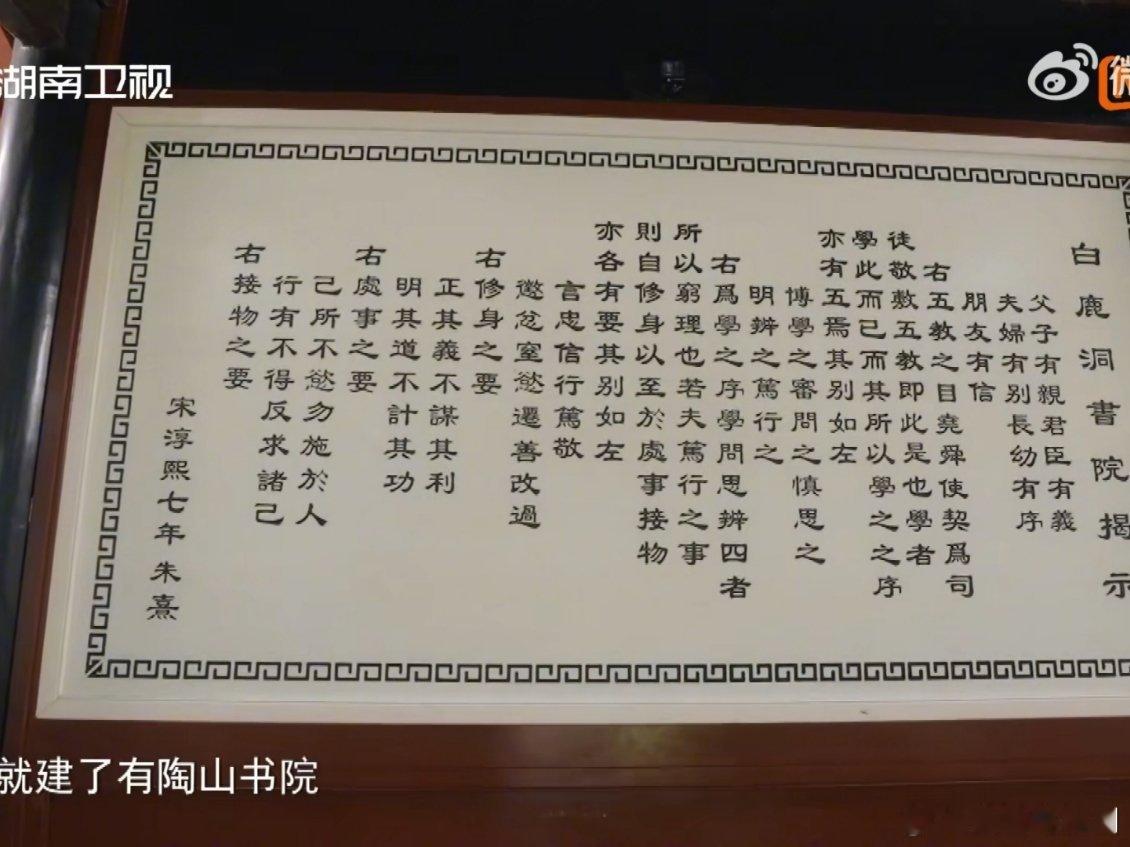 湖南卫视
白鹿洞書院揭示
父子有親君臣有義
夫婦有別長幼有序
朋友有信
右五教之目堯舜使契爲司
徒敬敷五教即此是也學者
學此而已而其所以學之之序
亦有五焉其別如左
博學之審問之慎思之
明辨之篤行之
右爲學之序學問思辨四者
所以窮理也若夫篤行之事
則自修身以至於處事接物
亦各有要其別如左
言忠信行篤敬
懲忿窒慾遷善改過
右修身之要
正其義不謀其利
明其道不計其功
右處事之要
己所不慾勿施於人
行有不得反求諸己
右接物之要
宋淳熙七年朱熹
就建了有陶山书院